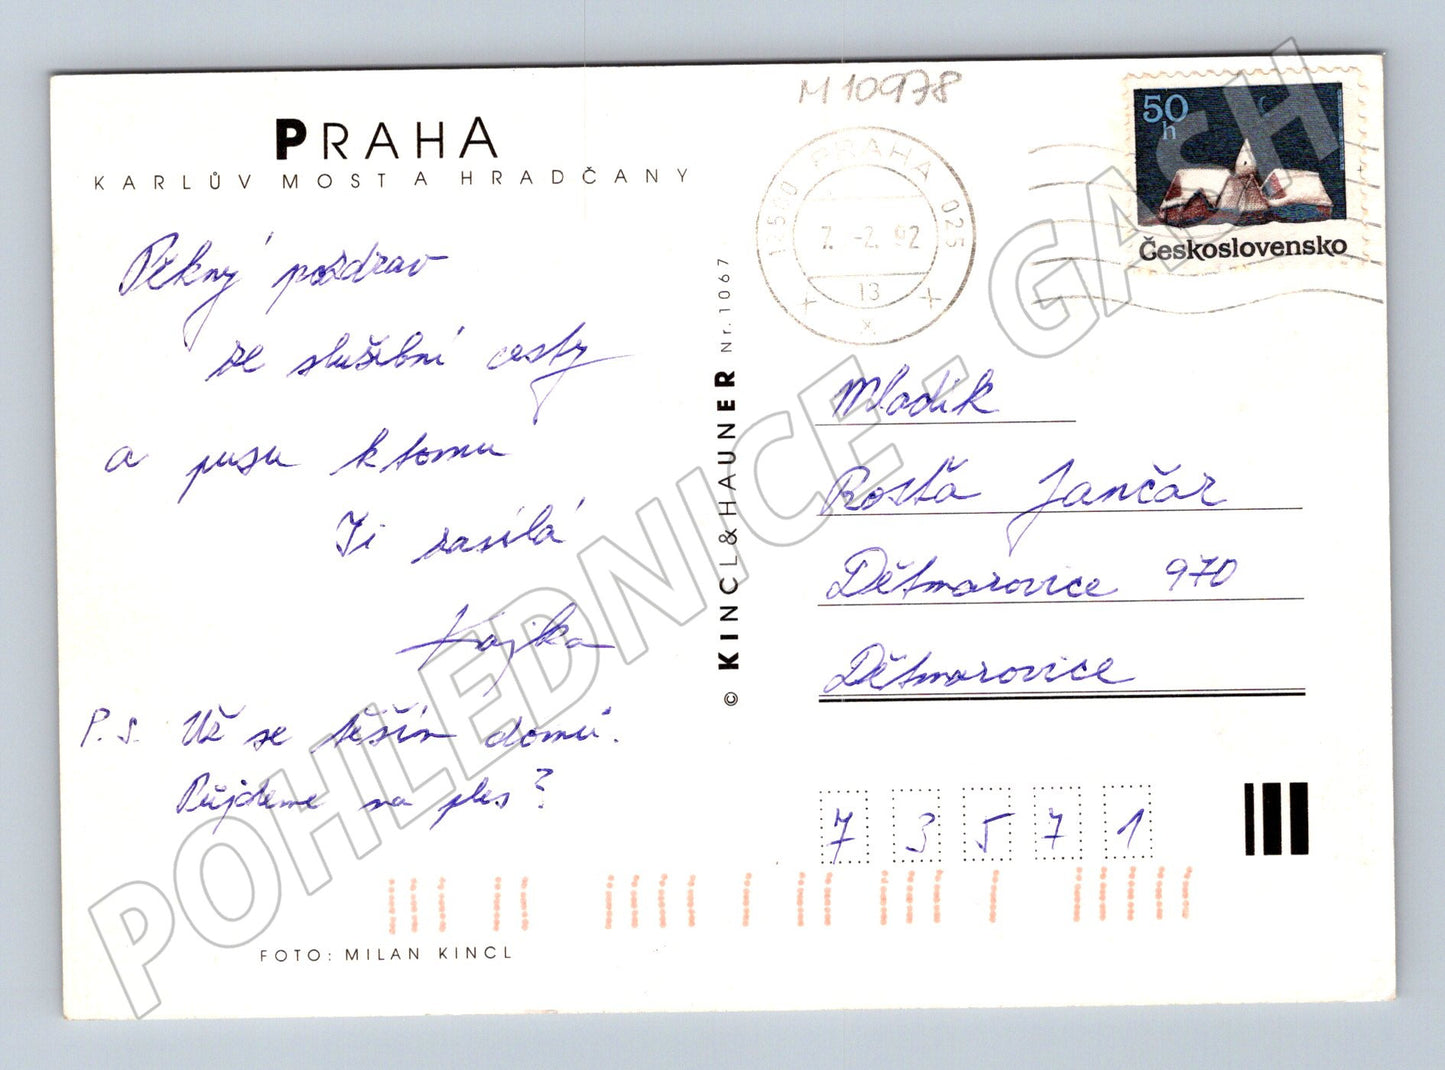 M 10978
PRAHA
KARLŮV MOST A HRADČANY
Pěkný pozdrav
ze služební cesty
a pusu k tomu
Ti zasílá
Kajka
P.S. Už se těším domů.
Půjdeme na ples?
FOTO: MILAN KINCL
© KINCL & HAUNER Nr. 1067
PRAHA 025
7.-2. 92
13
x
50
h
Československo
Mladík
Rosťa Jančár
Dětmarovice 970
Dětmarovice
7 3 5 7 1
POHLEDNICE - GASH